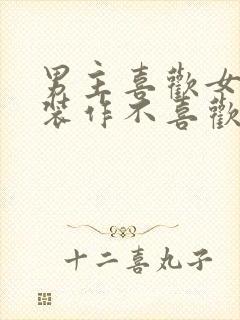 男主喜歡女
裝作不喜歡
十二喜丸子